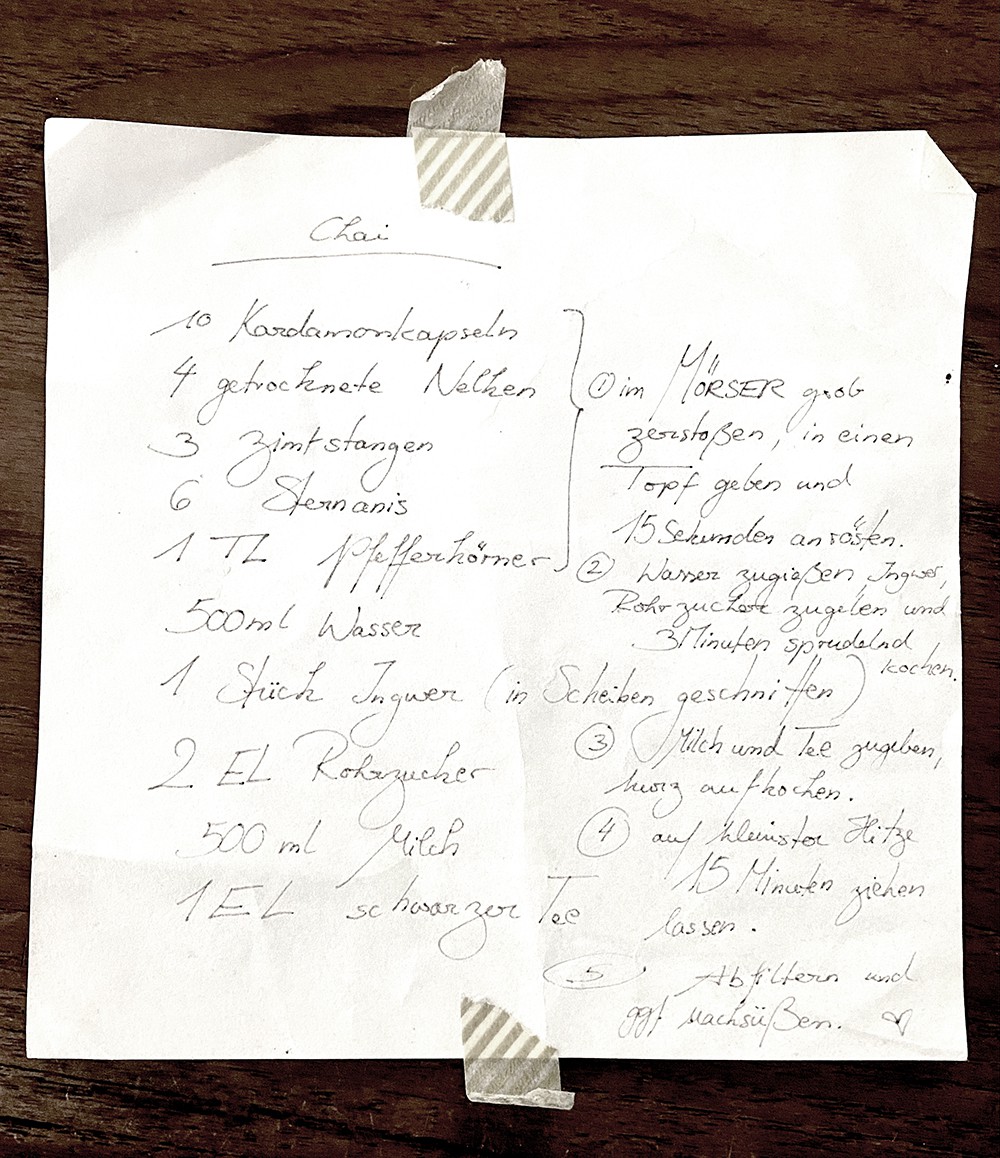 Chai
10 Kardamomkapseln
4 getrocknete Nelken
3 Zimtstangen
6 Sternanis
1 TL Pfefferkörner
500ml Wasser
1 Stück Ingwer (in Scheiben geschnitten)
2 EL Rohrzucker
500 ml Milch
1 EL schwarzer Tee
① im MÖRSER grob
zerstoßen, in einen
Topf geben und
15 Sekunden anrösten.
② Wasser zugießen, Ingwer,
Rohrzucker zugeben und
3 Minuten sprudelnd
kochen.
③ Milch und Tee zugeben,
kurz aufkochen.
④ auf kleinster Hitze
15 Minuten ziehen
lassen.
⑤ Abfiltern und
ggf nachsüßen. ♡